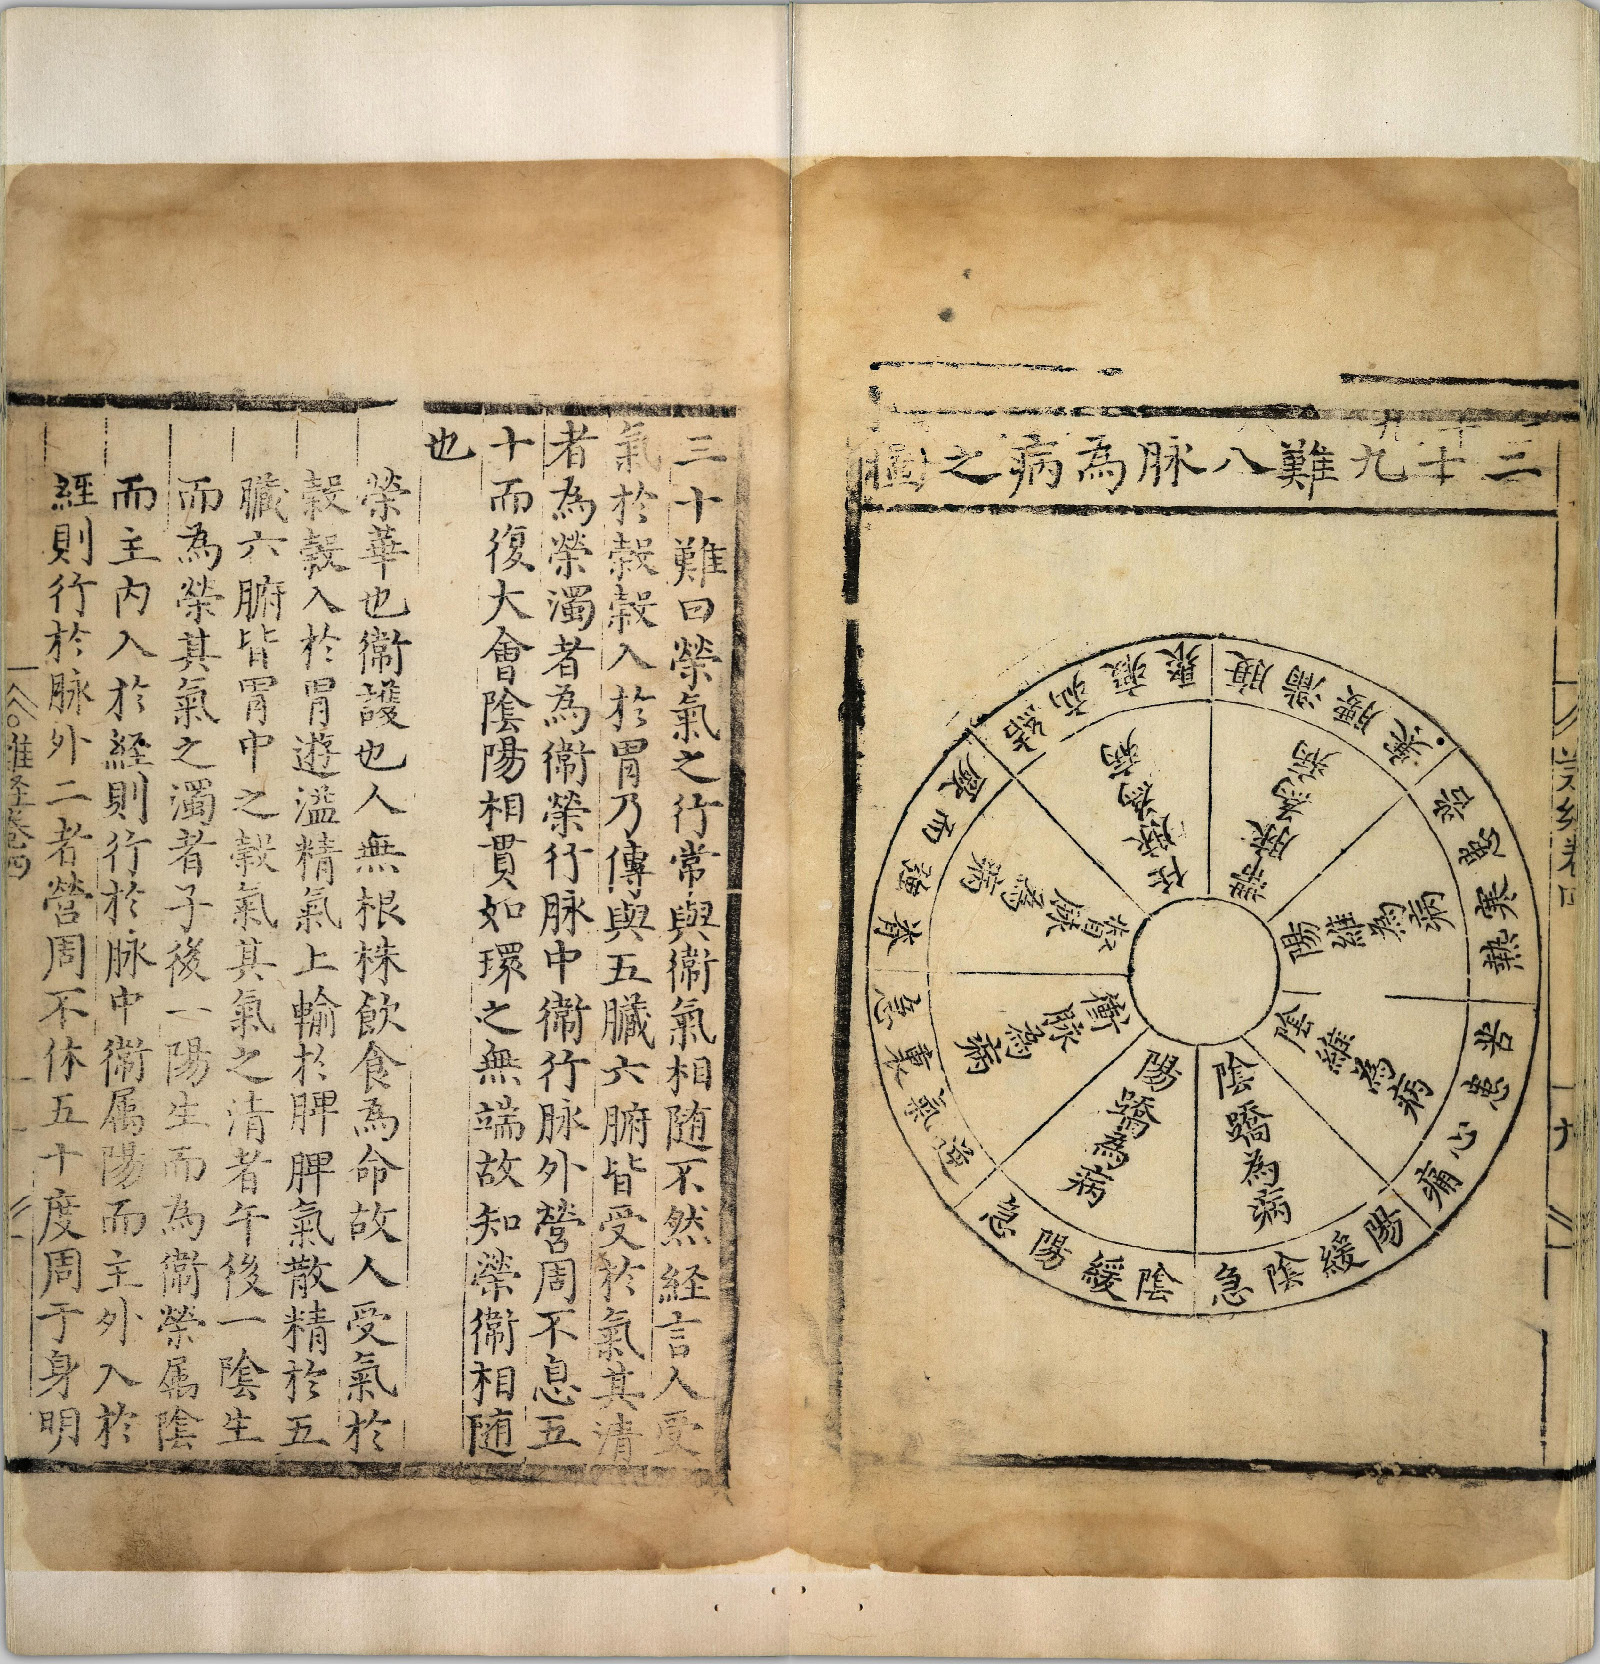 二十九難八脉為病之圖
陽維為病
苦患寒熱
陰維為病
苦患心痛
陰蹻為病
陽緩陰急
陽蹻為病
陰緩陽急
衝脉為病
逆氣裏急
督脉為病
脊強而厥
任脉為病
帶脉為病
腹滿腰
三十難曰榮氣之行常與衛氣相随不然経言人受
氣於穀穀入於胃乃傳與五臟六腑皆受於氣其清
者為榮濁者為衛榮行脉中衛行脉外營周不息五
十而復大會陰陽相貫如環之無端故知榮衛相随
也
榮華也衛護也人無根株飲食為命故人受氣於
穀穀入於胃遊溢精氣上輸於脾脾氣散精於五
臟六腑皆胃中之穀氣其氣之清者午後一陰生
而為榮其氣之濁者子後一陽生而為衛榮属陰
而主内入於経則行於脉中衛属陽而主外入於
經則行於脉外二者營周不休五十度周于身明